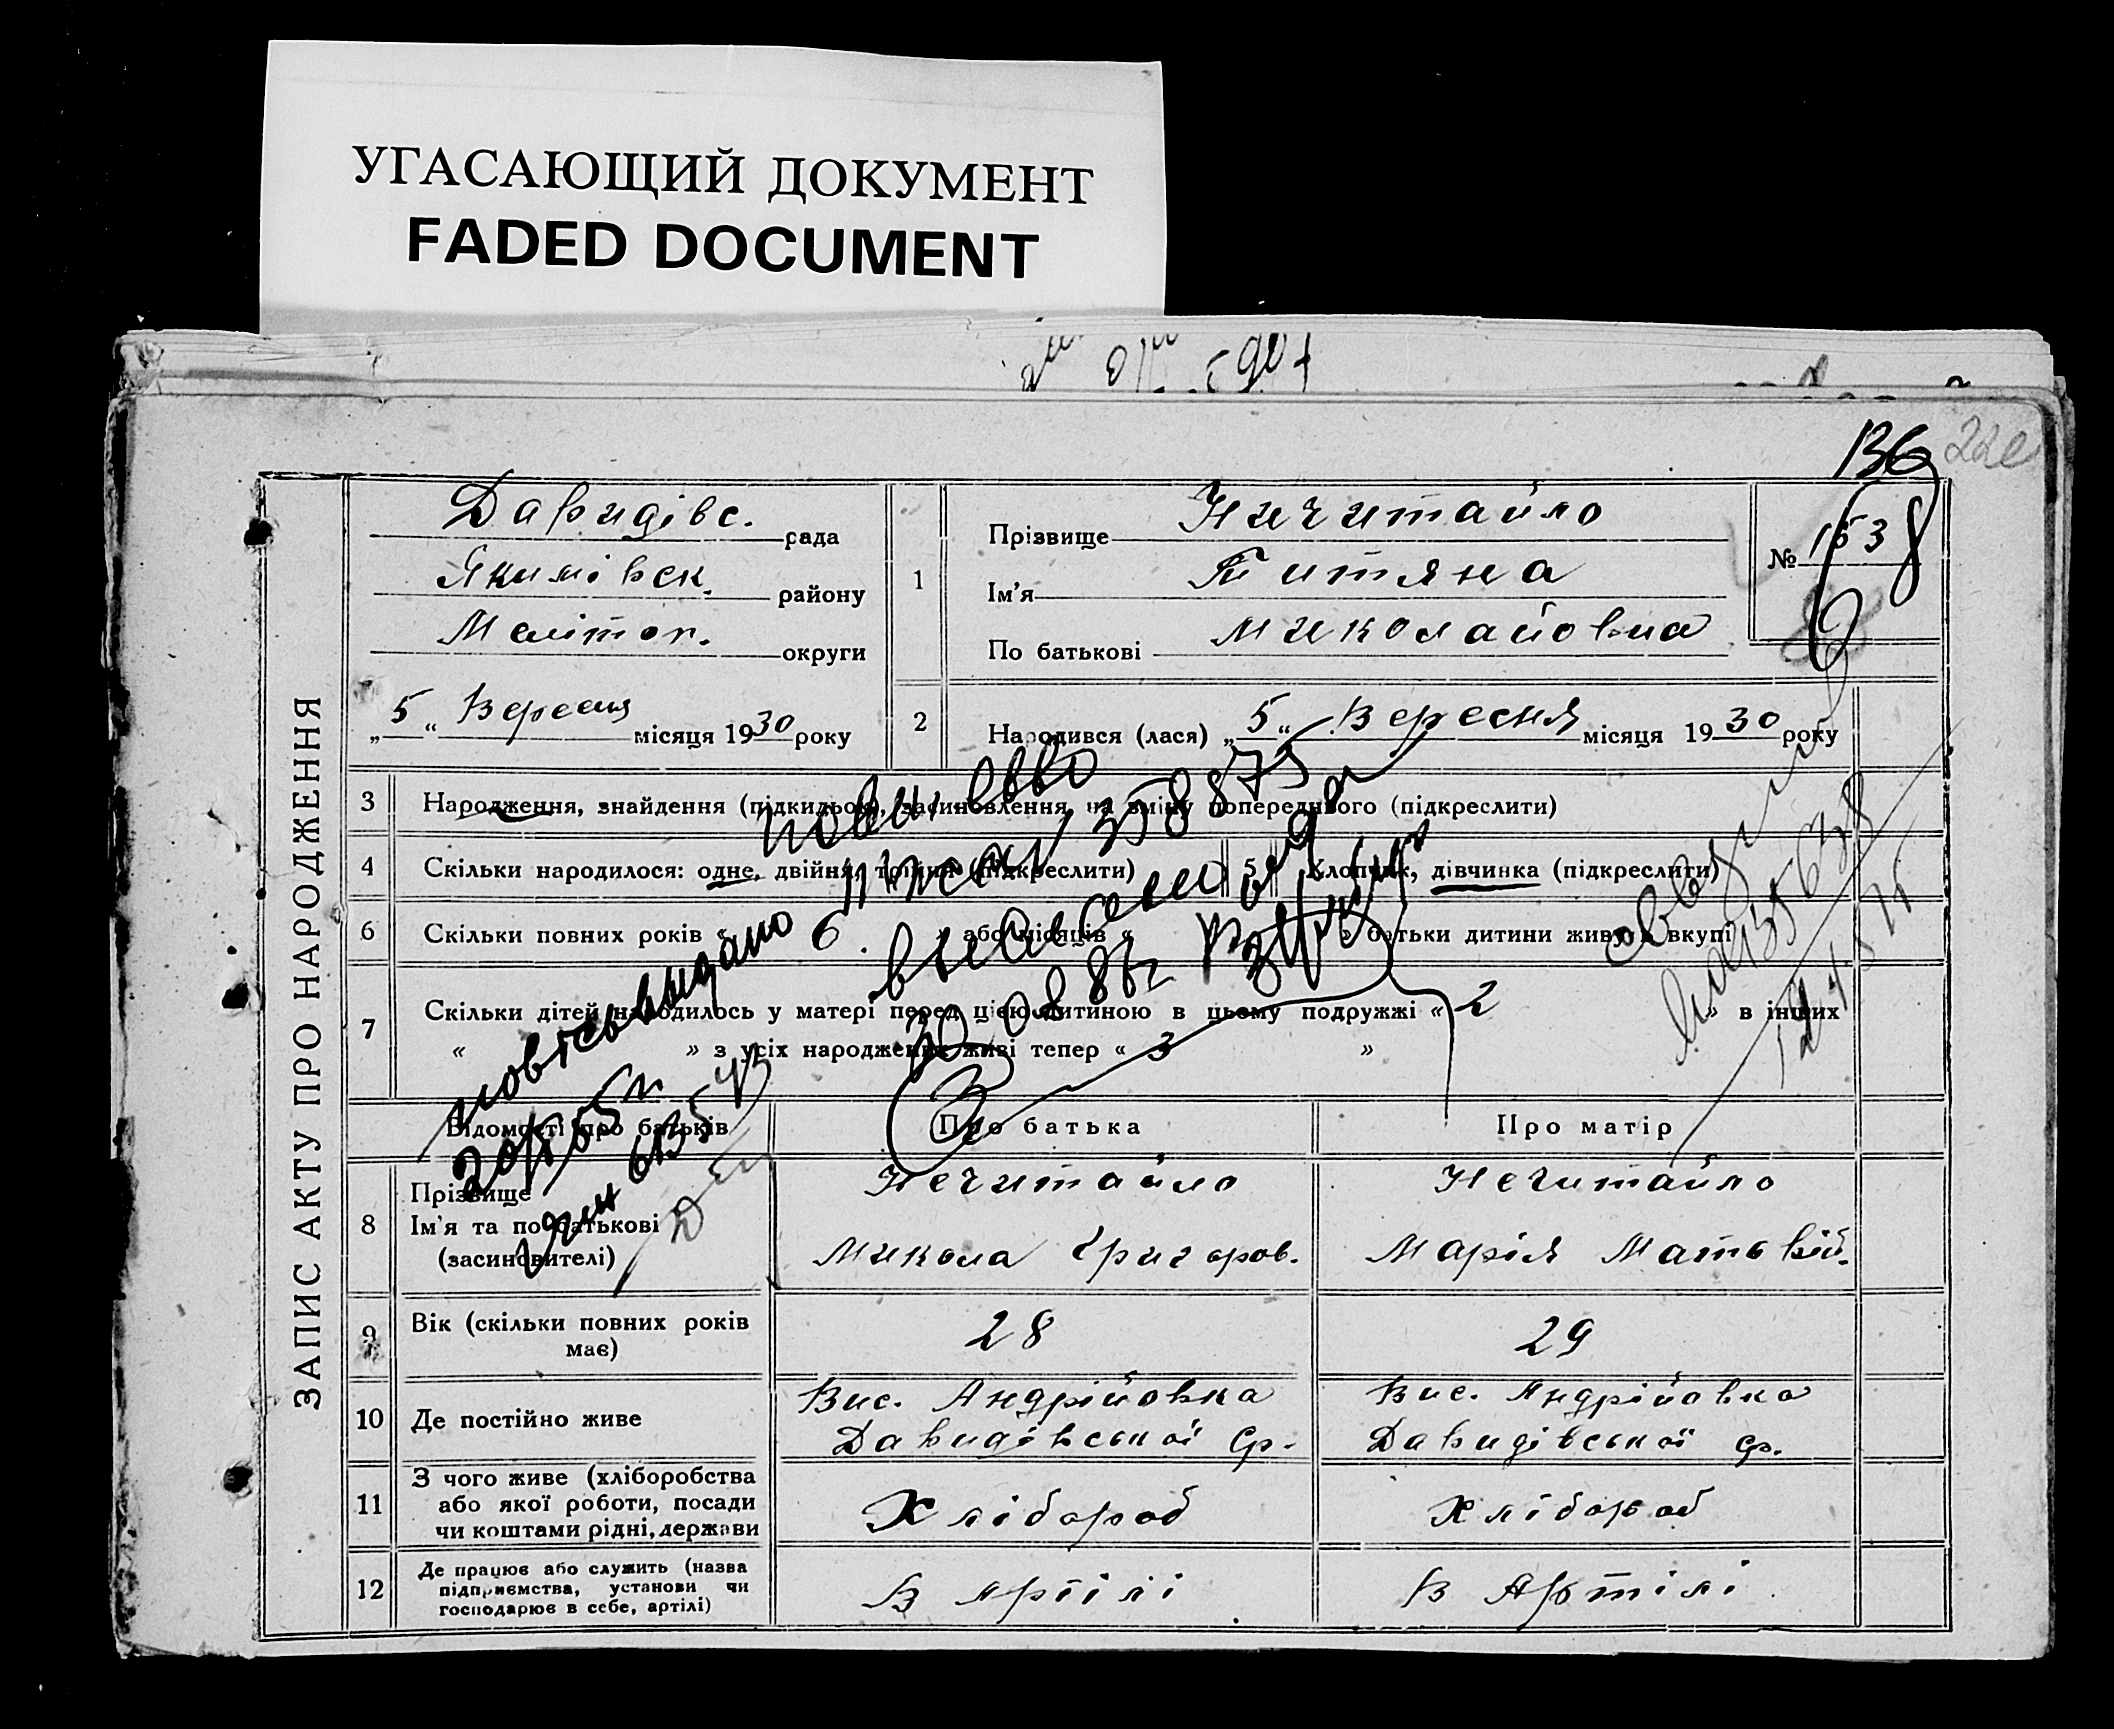 УГАСАЮЩИЙ ДОКУМЕНТ
FADED DOCUMENT
136
ЗАПИС АКТУ ПРО НАРОДЖЕННЯ
Давидівс. рада
Якимівск. району
Мелітоп. округи
„5“ Вересня місяця 1930 року
1
Прізвище Ничитайло
Ім'я Титяна
По батькові Миколайовна
№ 153
2 Народився (лася) „5“ Вересня місяця 1930 року
3 Народження, знайдення (підкидьок), засиновлення, на зміну попереднього (підкреслити)
4 Скільки народилося: одне, двійня, трійня (підкреслити)
5 Хлопчик, дівчинка (підкреслити)
6 Скільки повних років « 6. » або місяців « » батьки дитини живуть вкупі
7 Скільки дітей народилось у матері перед цією дитиною в цьому подружжі « 2 » в інших
« » з усіх народжених живі тепер « 3 »
повторно выдано
358875
30.08.86г
Відомості про батьків
Про батька
Про матір
8 Прізвище
Ім'я та по батькові
(засиновителі)
Нечитайло
Микола Григоров.
Нечитайло
Марія Матьвій.
9 Вік (скільки повних років має)
28
29
10 Де постійно живе
Вис. Андрійовка
Давидівської ср.
Вис. Андрійовка
Давидівської ср.
11 З чого живе (хліборобства
або якої роботи, посади
чи коштами рідні, держави
Хлібороб
Хлібороб
12 Де працює або служить (назва
підприємства, установи чи
господарює в себе, артілі)
В Артілі
В Артілі